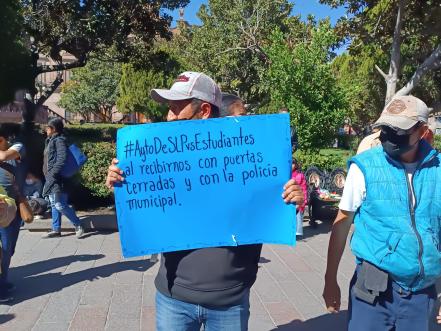 #AytoDeSLPvsEstudiantes
al recibirnos con puertas
cerradas y con la policía
municipal.